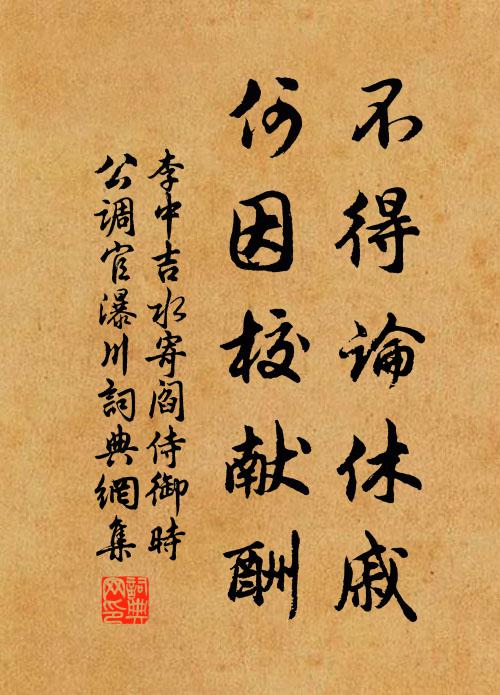 不得論休戚
何因校献酬
李中吉水寄阎侍御時
公調官瀑川詞典網集
詞典
网印